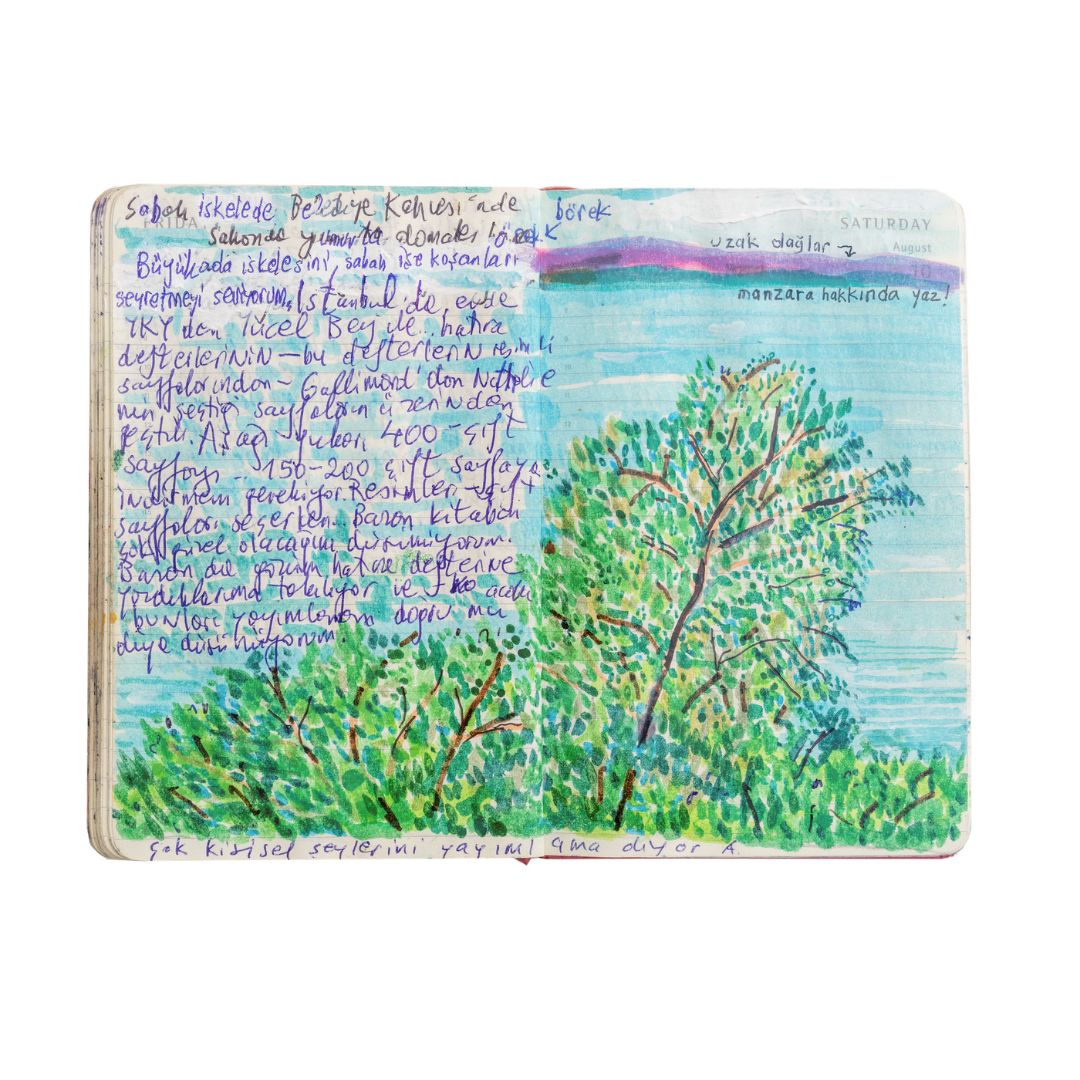 Sabah iskelede Belediye Kahvesi'nde
FRIDAY
Sahanda yumurta domates börek
börek
Büyükada iskelesini, sabah işe koşanları
seyretmeyi seviyorum. İstanbul'da, evde
YKY den Yücel Bey ile.. hatıra
defterlerinin – bu defterlerin resimli
sayfalarından – Gallimard'dan Nathalie
nin seçtiği sayfaların üzerinden
geçtik. Aşağı yukarı 400 – çift
sayfayı – 150–200 çift sayfaya
indirmem gerekiyor. Resimleri – çift
sayfaları seçerken.. Bazan kitabın
çok güzel olacağını düşünüyorum.
Bazan da gözüm hatıra defterine
yazdıklarıma takılıyor ve
bunları yayımlamam doğru mu
diye düşünüyorum.
SATURDAY
uzak dağlar
August
10
manzara hakkında yaz!
çok kişisel şeylerini yayımlama diyor A.